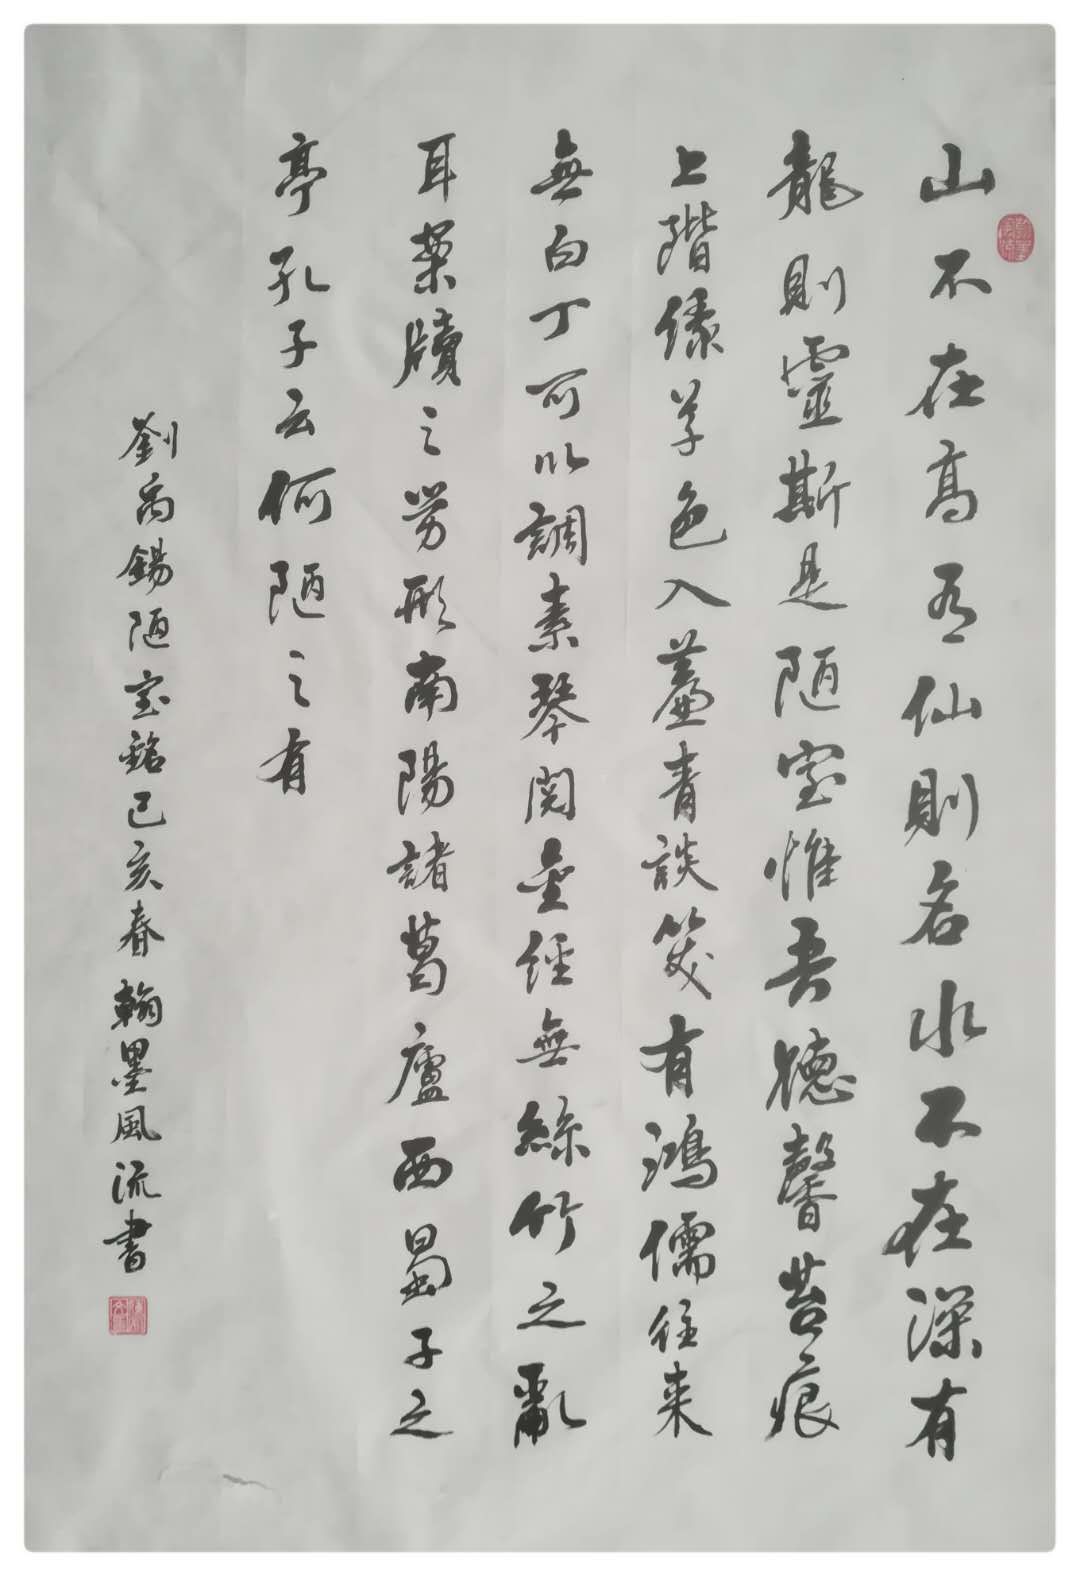 山不在高有仙則名水不在深有
龍則靈斯是陋室惟吾德馨苔痕
上階緑草色入簾青談笑有鴻儒往来
無白丁可以調素琴閱金經無絲竹之亂
耳案牘之勞形南陽諸葛廬西蜀子之
亭孔子云何陋之有
劉禹錫陋室銘己亥春翰墨風流書